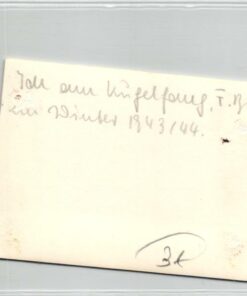 Ich am Kugelfang, I. B
im Winter 1943/44.